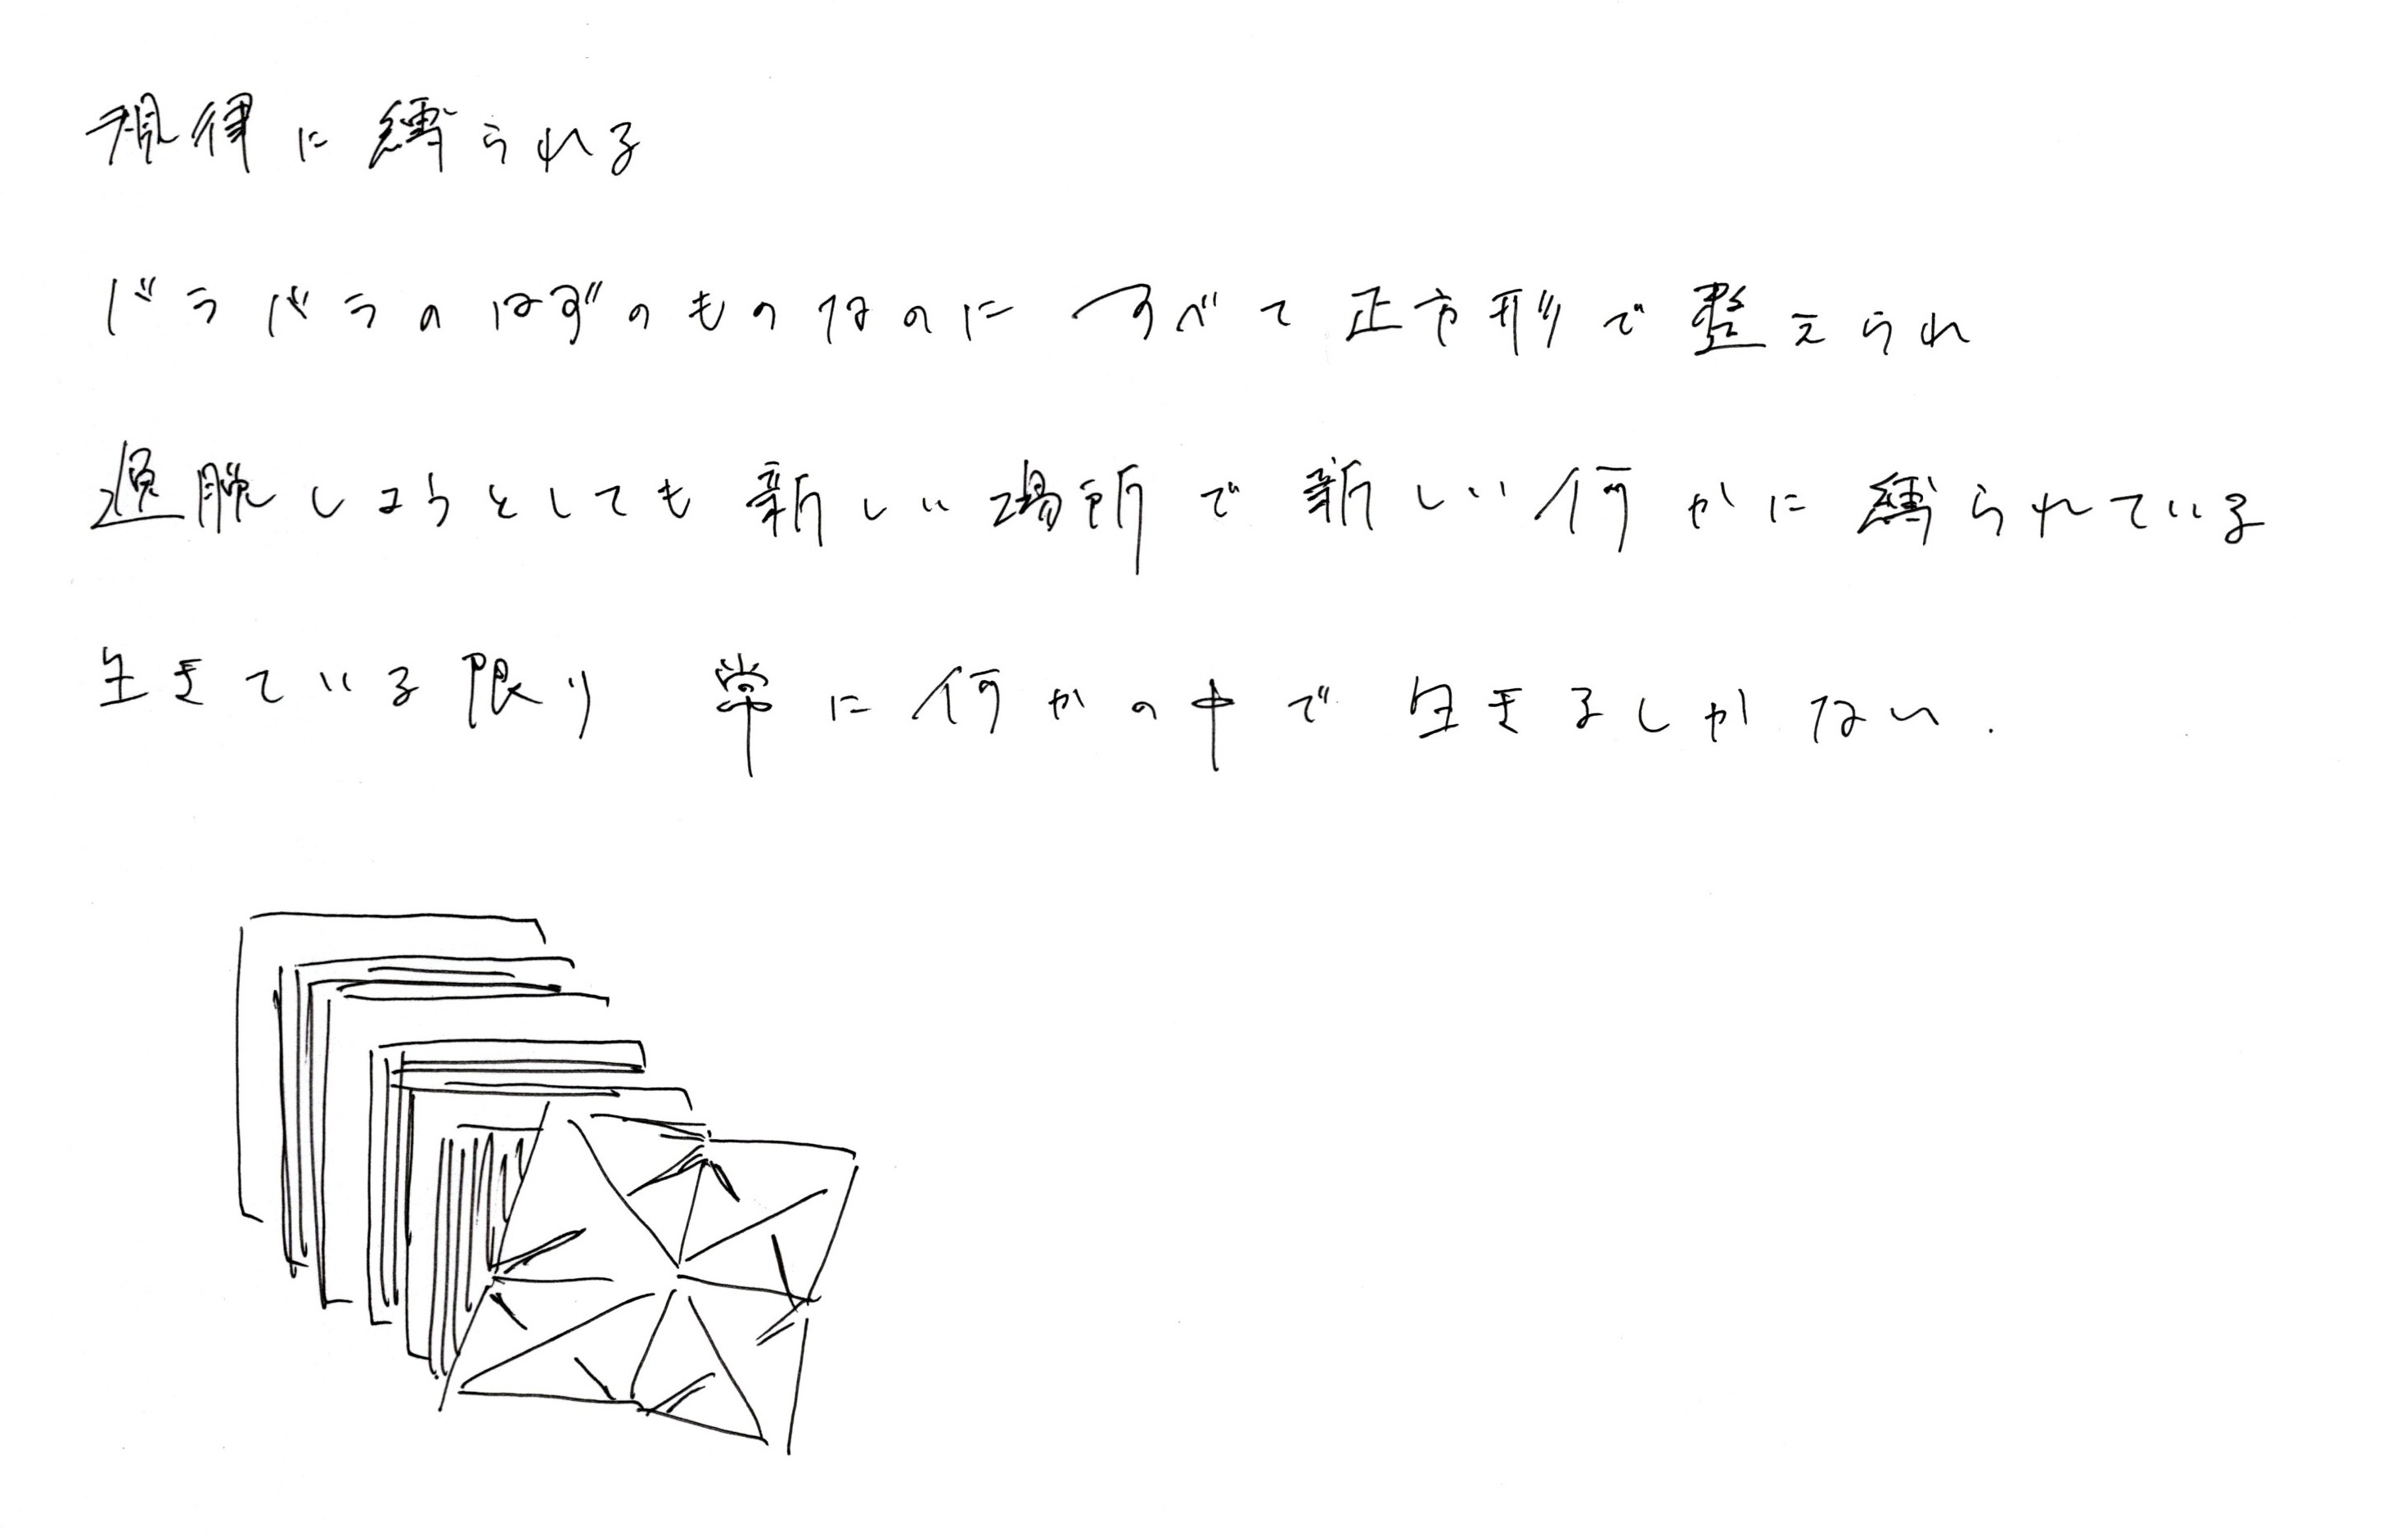 規律に縛られる
バラバラのはずのものなのに すべて正方形で整えられ
逸脱しようとしても新しい場所で新しい何かに縛られている
生きている限り 常に何かの中で生きるしかない.